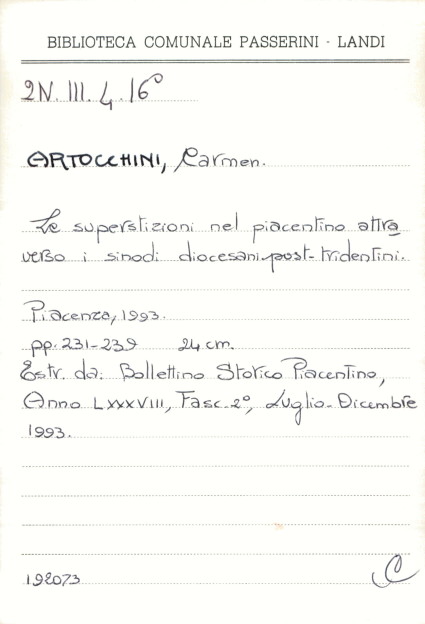 BIBLIOTECA COMUNALE PASSERINI - LANDI
2N. III. 4. 16º
ARTOCCHINI, Carmen.
Le superstizioni nel piacentino attra
verso i sinodi diocesani post-tridentini.
Piacenza, 1993.
pp. 231-239 24 cm.
Estr. da: Bollettino Storico Piacentino,
Anno LXXXVIII, Fasc. 2º, Luglio-Dicembre
1993.
192073 C